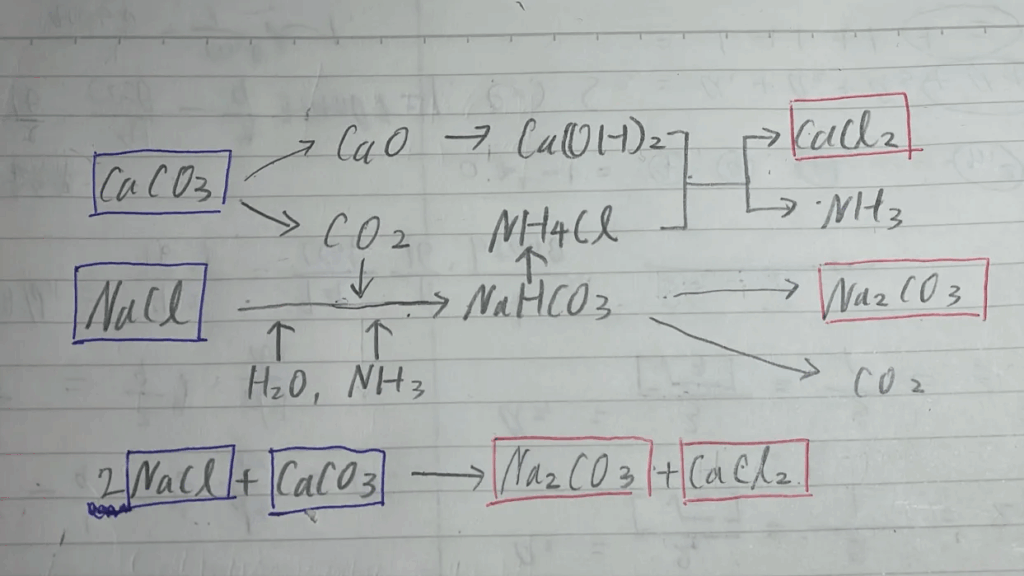 CaO → Ca(OH)2 → CaCl2
CaCO3
CO2 NH4Cl → NH3
NaCl → NaHCO3 → Na2CO3
H2O, NH3 CO2
2NaCl + CaCO3 → Na2CO3 + CaCl2